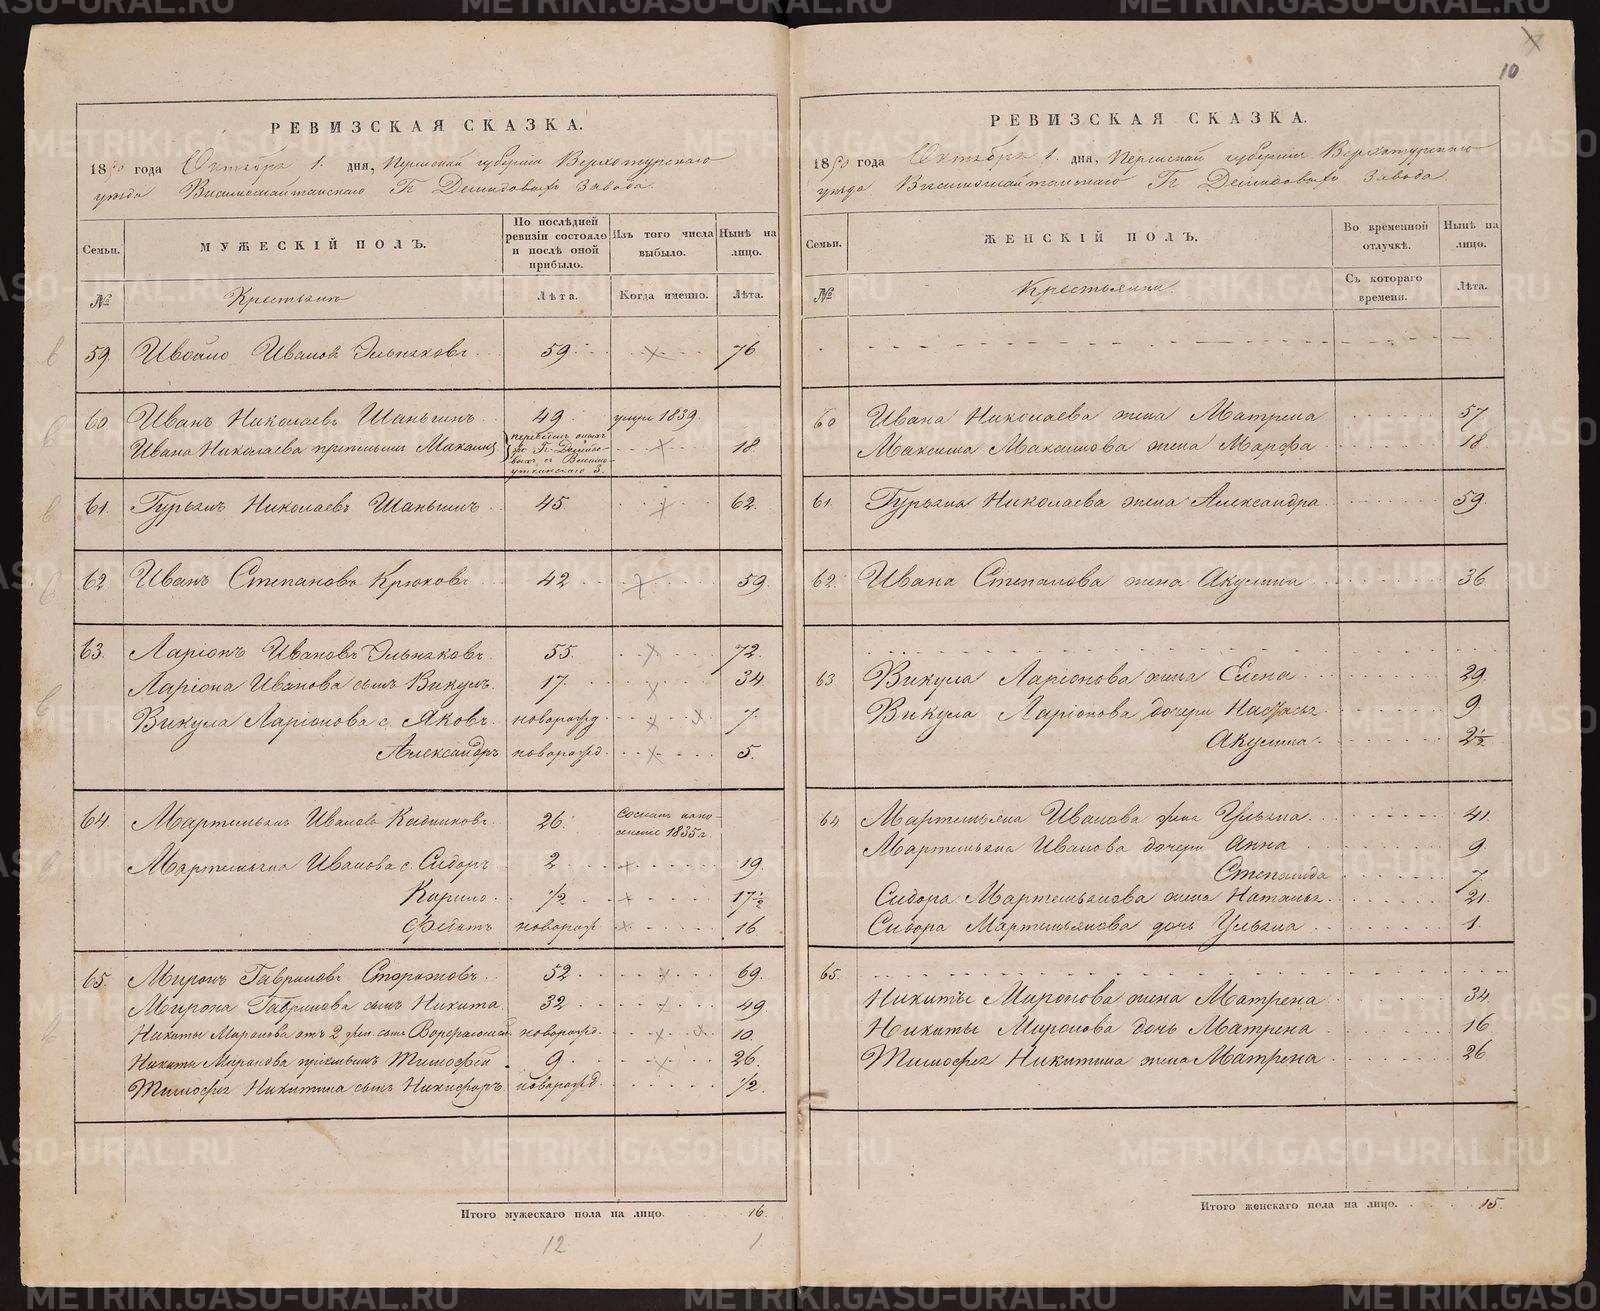 10
РЕВИЗСКАЯ СКАЗКА.
1850 года Октября 1. дня, Пермской губернiи Верхотурскаго
уѣзда Висимошайтанскаго Гг. Демидовыхъ Завода.
Семьи.
МУЖЕСКIЙ ПОЛЪ.
По послѣдней ревизiи состояло и послѣ оной прибыло.
Изъ того числа выбыло.
Нынѣ на лицо.
№
Крестьянъ
Лѣта.
Когда именно.
Лѣта.
59. Иванъ Ивановъ 59. 76
60. Иванъ Николаевъ Шаньгинъ 49 умре 1839.
Ивана Николаева прiемышъ Максимъ 18.
61. Гурьянъ Николаевъ Шаньгинъ 45. 62.
62 Иванъ Степановъ Крюковъ 42 59
63. Ларiонъ Ивановъ 55. 72.
Ларiона Иванова сынъ Викулъ 17. 34
Викула Ларiонова с. Яковъ новорожд 7.
Александръ новорожд. 5.
64. Мартемьянъ Ивановъ 26. Сосланъ на поселенiе 1835 г.
Мартемьяна Иванова с. Сидоръ 2 19.
Карпъ 1/2 17 1/2
Федотъ новорож 16.
65. Миронъ Гавриловъ 52 69.
Мирона Гаврилова сынъ Никита 32 49
Никиты Миронова отъ 2 жен. сынъ новорожд. 10.
Никиты Миронова прiемышъ Тимофей 9 26.
Тимофея Никитина сынъ Никифоръ новорожд. 1/2.
Итого мужескаго пола на лицо. 16.
12 1
РЕВИЗСКАЯ СКАЗКА.
1850 года Октября 1. дня, Пермской губернiи Верхотурскаго
уѣзда Висимошайтанскаго Гг. Демидовыхъ Завода.
Семьи.
ЖЕНСКIЙ ПОЛЪ.
Во временной отлучкѣ.
Нынѣ на лицо.
№
Крестьянки
Съ котораго времени.
Лѣта.
60 Ивана Николаева жена Матрена 57
Максима Максимова жена Марфа 18.
61. Гурьяна Николаева жена Александра 59.
62. Ивана Степанова жена Акулина 36
63. Викула Ларiонова жена Елена 29.
Викула Ларiонова дочери Настасья 9.
Акулина. 2 1/2
64 Мартемьяна Иванова жена Ульяна. 41.
Мартемьяна Иванова дочери Анна 9.
Степанида 7.
Сидора Мартемьянова жена Наталья 21.
Сидора Мартемьянова дочь Ульяна 1.
65.
Никиты Миронова жена Матрена 34
Никиты Миронова дочь Матрена 16
Тимофея Никитина жена Матрена 26
Итого женскаго пола на лицо. 15.
METRIKI.GASO-URAL.RU